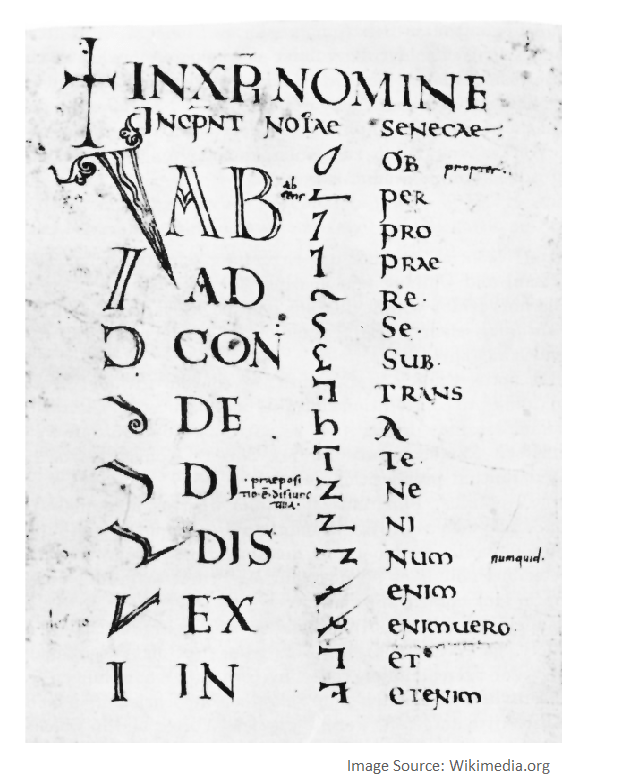 INXPI NOMINE
INCPNT NOTAE SENECAE
AB
AD
CON
DE
DI ·praeposi
tio ē disiunc
tiua·
DIS
EX
IN
OB propter..
PER
PRO
PRAE
RE.
SE.
SUB.
TRANS
A
TE
NE
NI
NUM numquid.
ENIM
ENIMUERO
ET
ETENIM
Image Source: Wikimedia.org